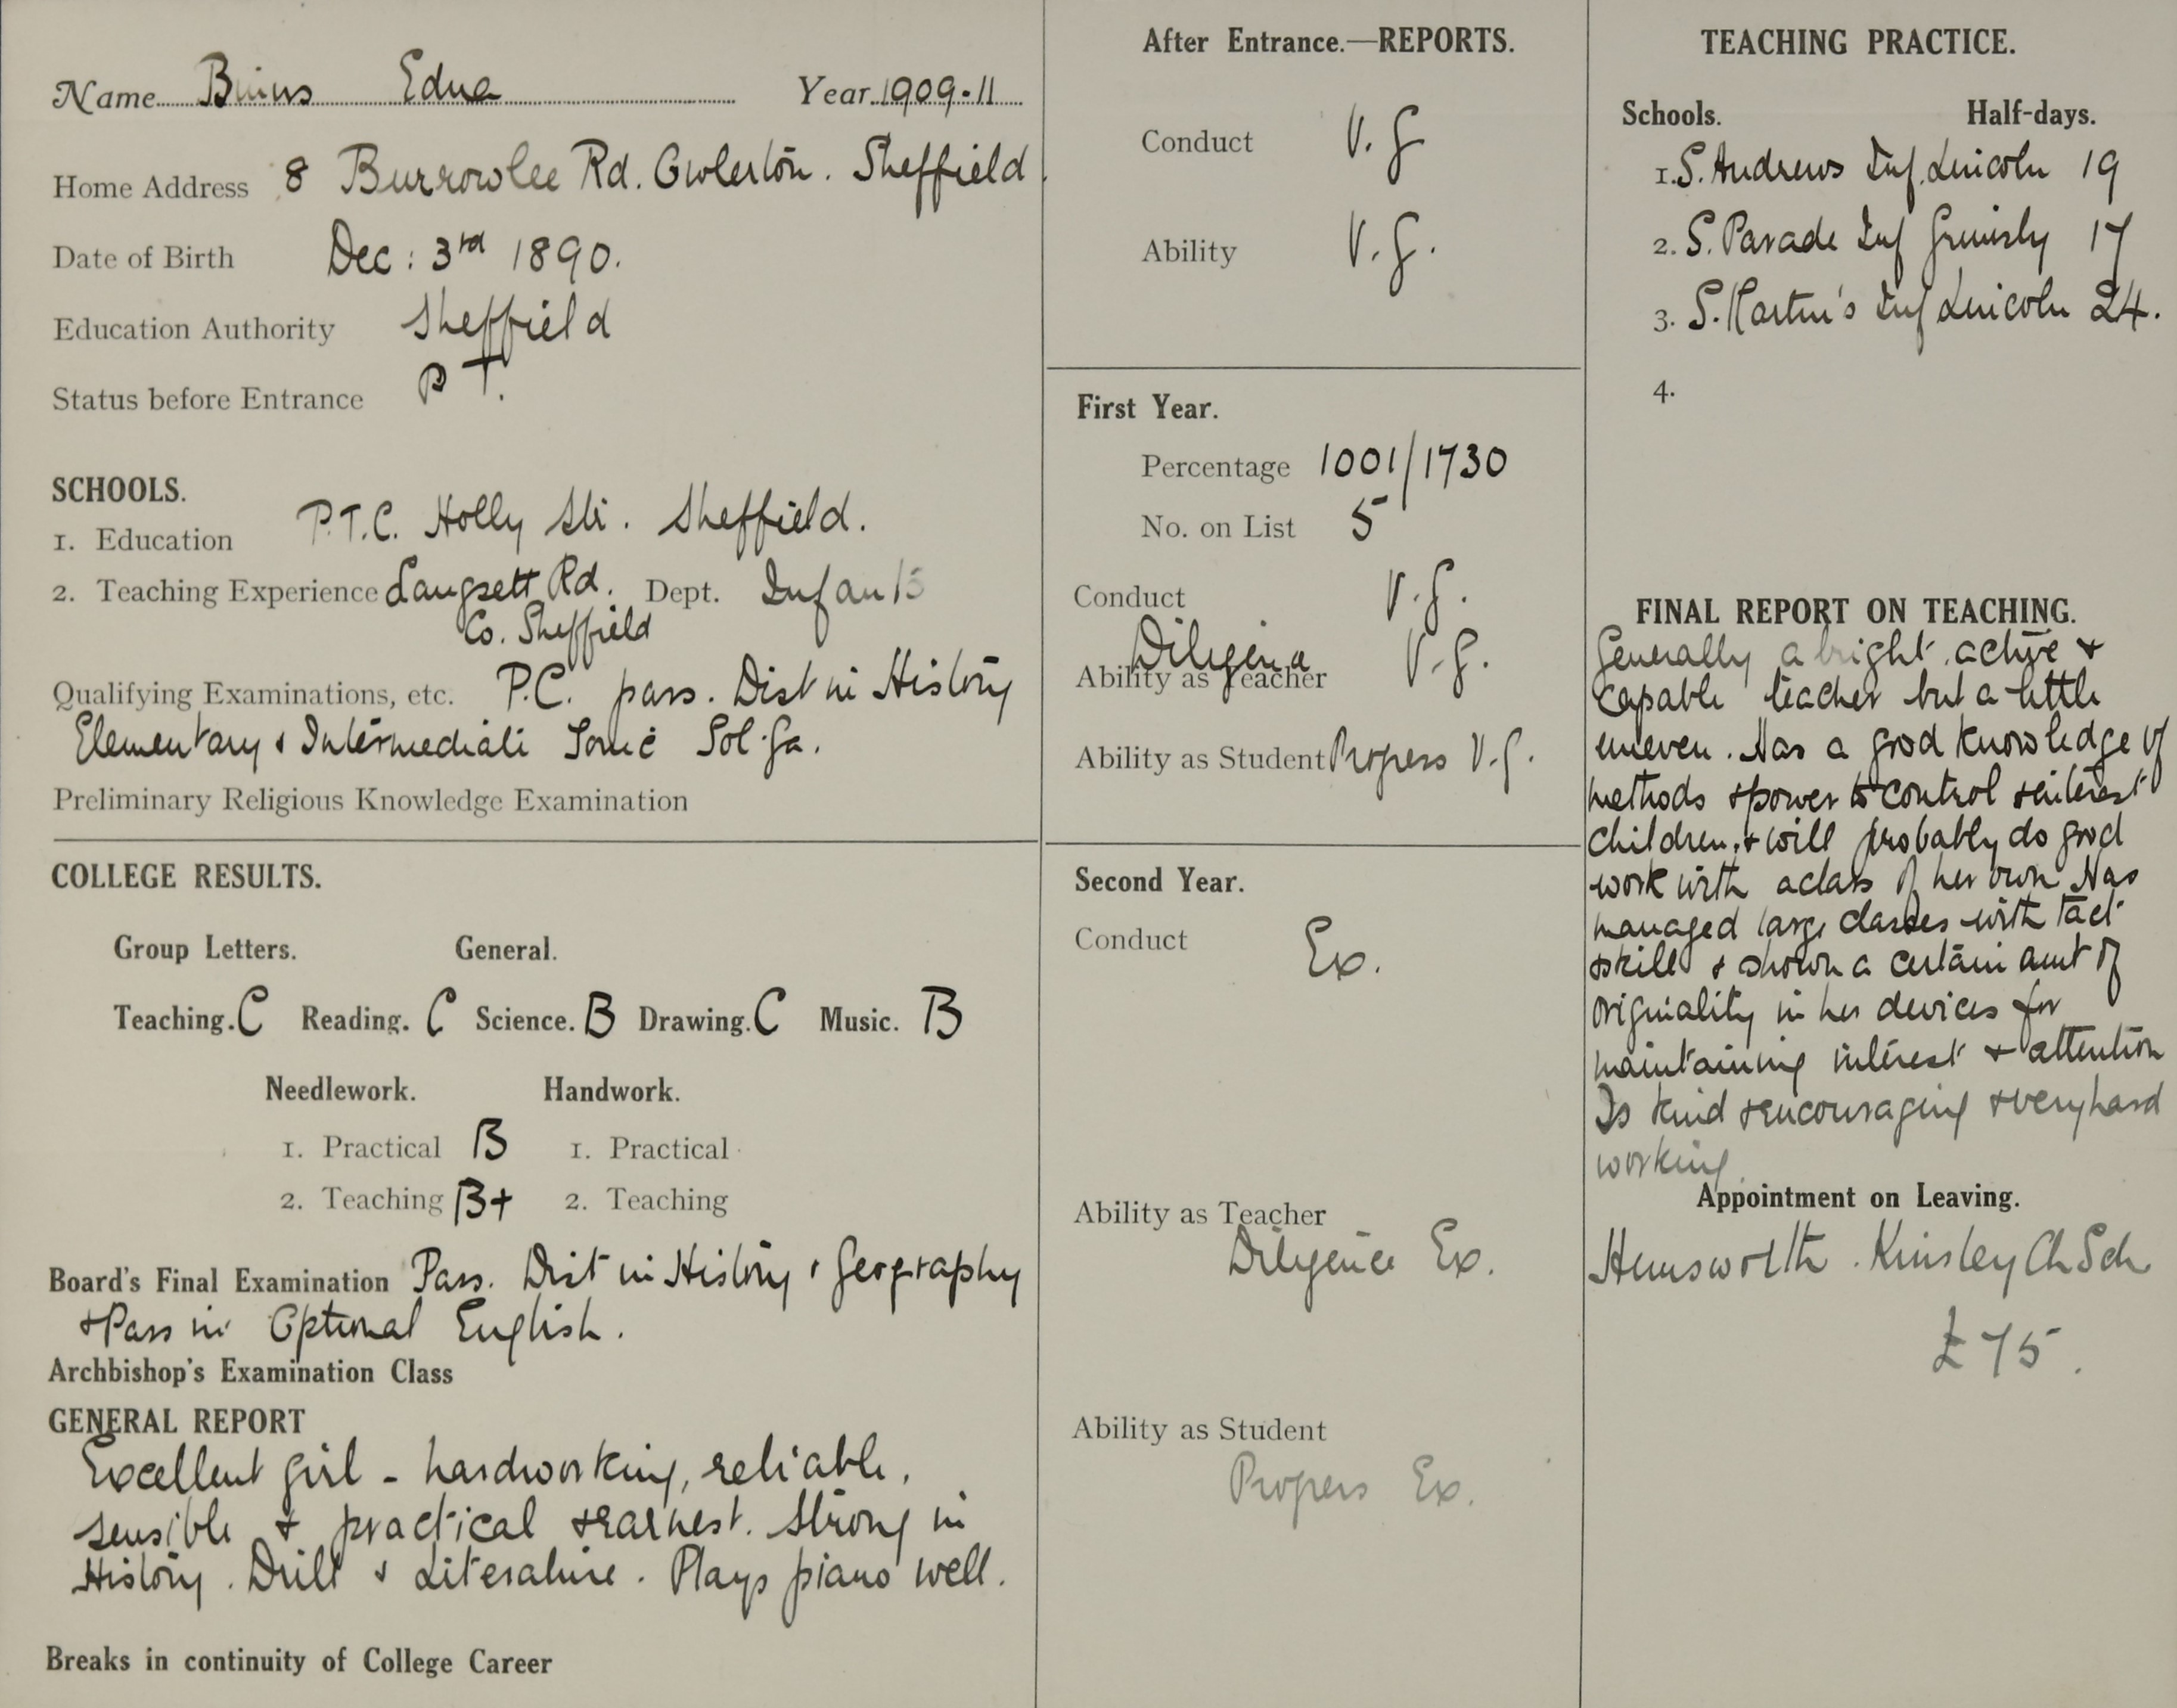 Name Binns Edna Year 1909-11
Home Address 8 Burrowlee Rd. Owlerton. Sheffield.
Date of Birth Dec: 3rd 1890.
Education Authority Sheffield
Status before Entrance P T.
SCHOOLS.
1. Education P.T.C. Holly Str. Sheffield.
2. Teaching Experience Langsett Rd. Dept. Infants
Co. Sheffield
Qualifying Examinations, etc. P.C. pass. Dist in History
Elementary & Intermediate Tonic Sol-fa.
Preliminary Religious Knowledge Examination
COLLEGE RESULTS.
Group Letters. General.
Teaching. C Reading. C Science. B Drawing. C Music. B
Needlework. Handwork.
1. Practical B 1. Practical
2. Teaching B+ 2. Teaching
Board's Final Examination Pass. Dist in History & Geography
& Pass in Optional English.
Archbishop's Examination Class
GENERAL REPORT
Excellent girl - hardworking, reliable,
sensible & practical & earnest. Strong in
History. Drill & Literature. Plays piano well.
Breaks in continuity of College Career
After Entrance.—REPORTS.
Conduct V.G
Ability V.G.
First Year.
Percentage 1001/1730
No. on List 5
Conduct V.G.
Diligence V.G.
Ability as Teacher
Ability as Student Progress V.G.
Second Year.
Conduct Ex.
Ability as Teacher
Diligence Ex.
Ability as Student
Progress Ex.
TEACHING PRACTICE.
Schools. Half-days.
1. S. Andrews Inf. Lincoln 19
2. S. Parade Inf Grimsby 17
3. S. Martin's Inf Lincoln 24.
4.
FINAL REPORT ON TEACHING.
Generally a bright, active &
capable teacher but a little
uneven. Has a good knowledge of
methods & power to control & interest
children, & will probably do good
work with a class of her own. Has
managed large classes with tact
& skill & shown a certain amt of
originality in her devices for
maintaining interest & attention
Is kind & encouraging & very hard
working.
Appointment on Leaving.
Hemsworth. Kinsley Ch Sch
£75.